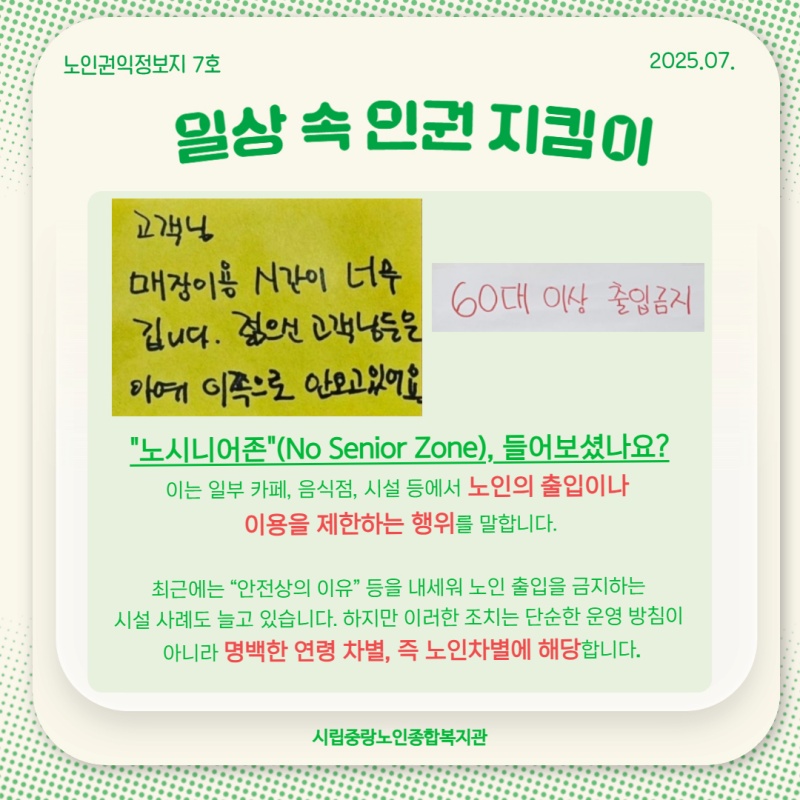 노인권익정보지 7호
2025.07.
일상 속 인권 지킴이
고객님
매장이용 시간이 너무
깁니다. 젊으신 고객님들은
아예 이쪽으로 안오고있어요
60대 이상 출입금지
"노시니어존"(No Senior Zone), 들어보셨나요?
이는 일부 카페, 음식점, 시설 등에서 노인의 출입이나
이용을 제한하는 행위를 말합니다.
최근에는 “안전상의 이유” 등을 내세워 노인 출입을 금지하는
시설 사례도 늘고 있습니다. 하지만 이러한 조치는 단순한 운영 방침이
아니라 명백한 연령 차별, 즉 노인차별에 해당합니다.
시립중랑노인종합복지관